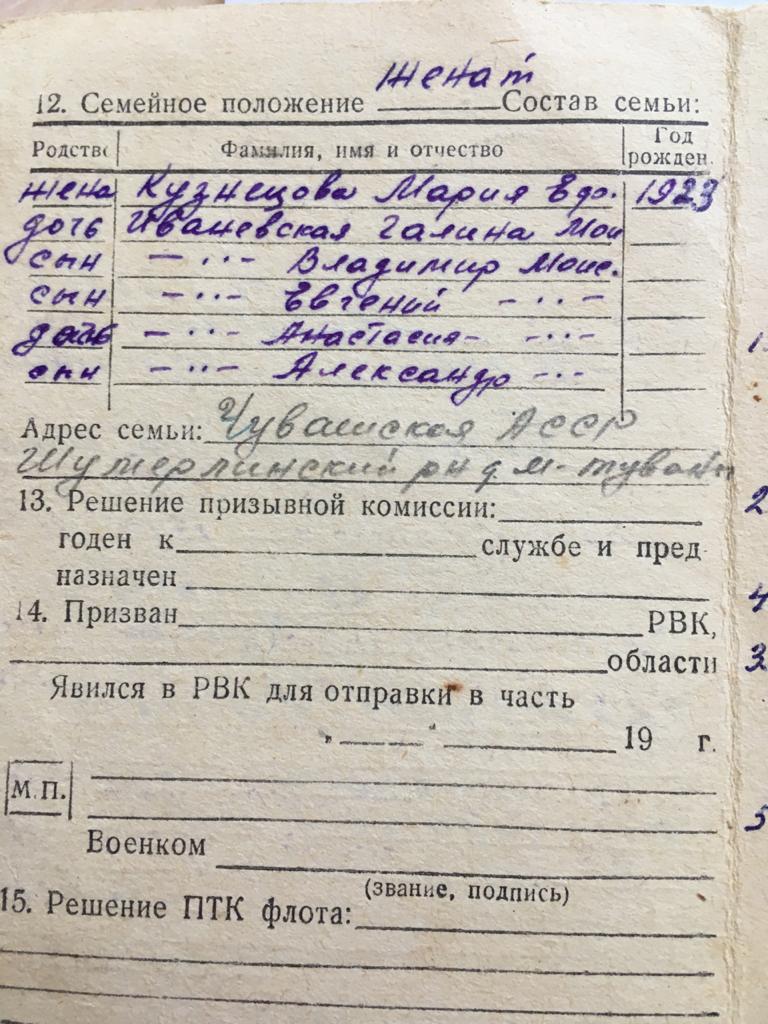 женат
12. Семейное положение Состав семьи:
Родство Фамилия, имя и отчество Год рожден.
жена Кузнецова Мария Едо. 1923
дочь Иваневская Галина Мои
сын —··— Владимир Моис.
сын —··— Евгений —··—
дочь —··— Анастасия —··—
сын —··— Александр —··—
Адрес семьи: Чувашская АССР
Шумерлинский рн д.
13. Решение призывной комиссии:
годен к службе и пред
назначен
14. Призван РВК,
области
Явился в РВК для отправки в часть
„ “ 19 г.
М.П.
Военком
(звание, подпись)
15. Решение ПТК флота:
2
4
3
5